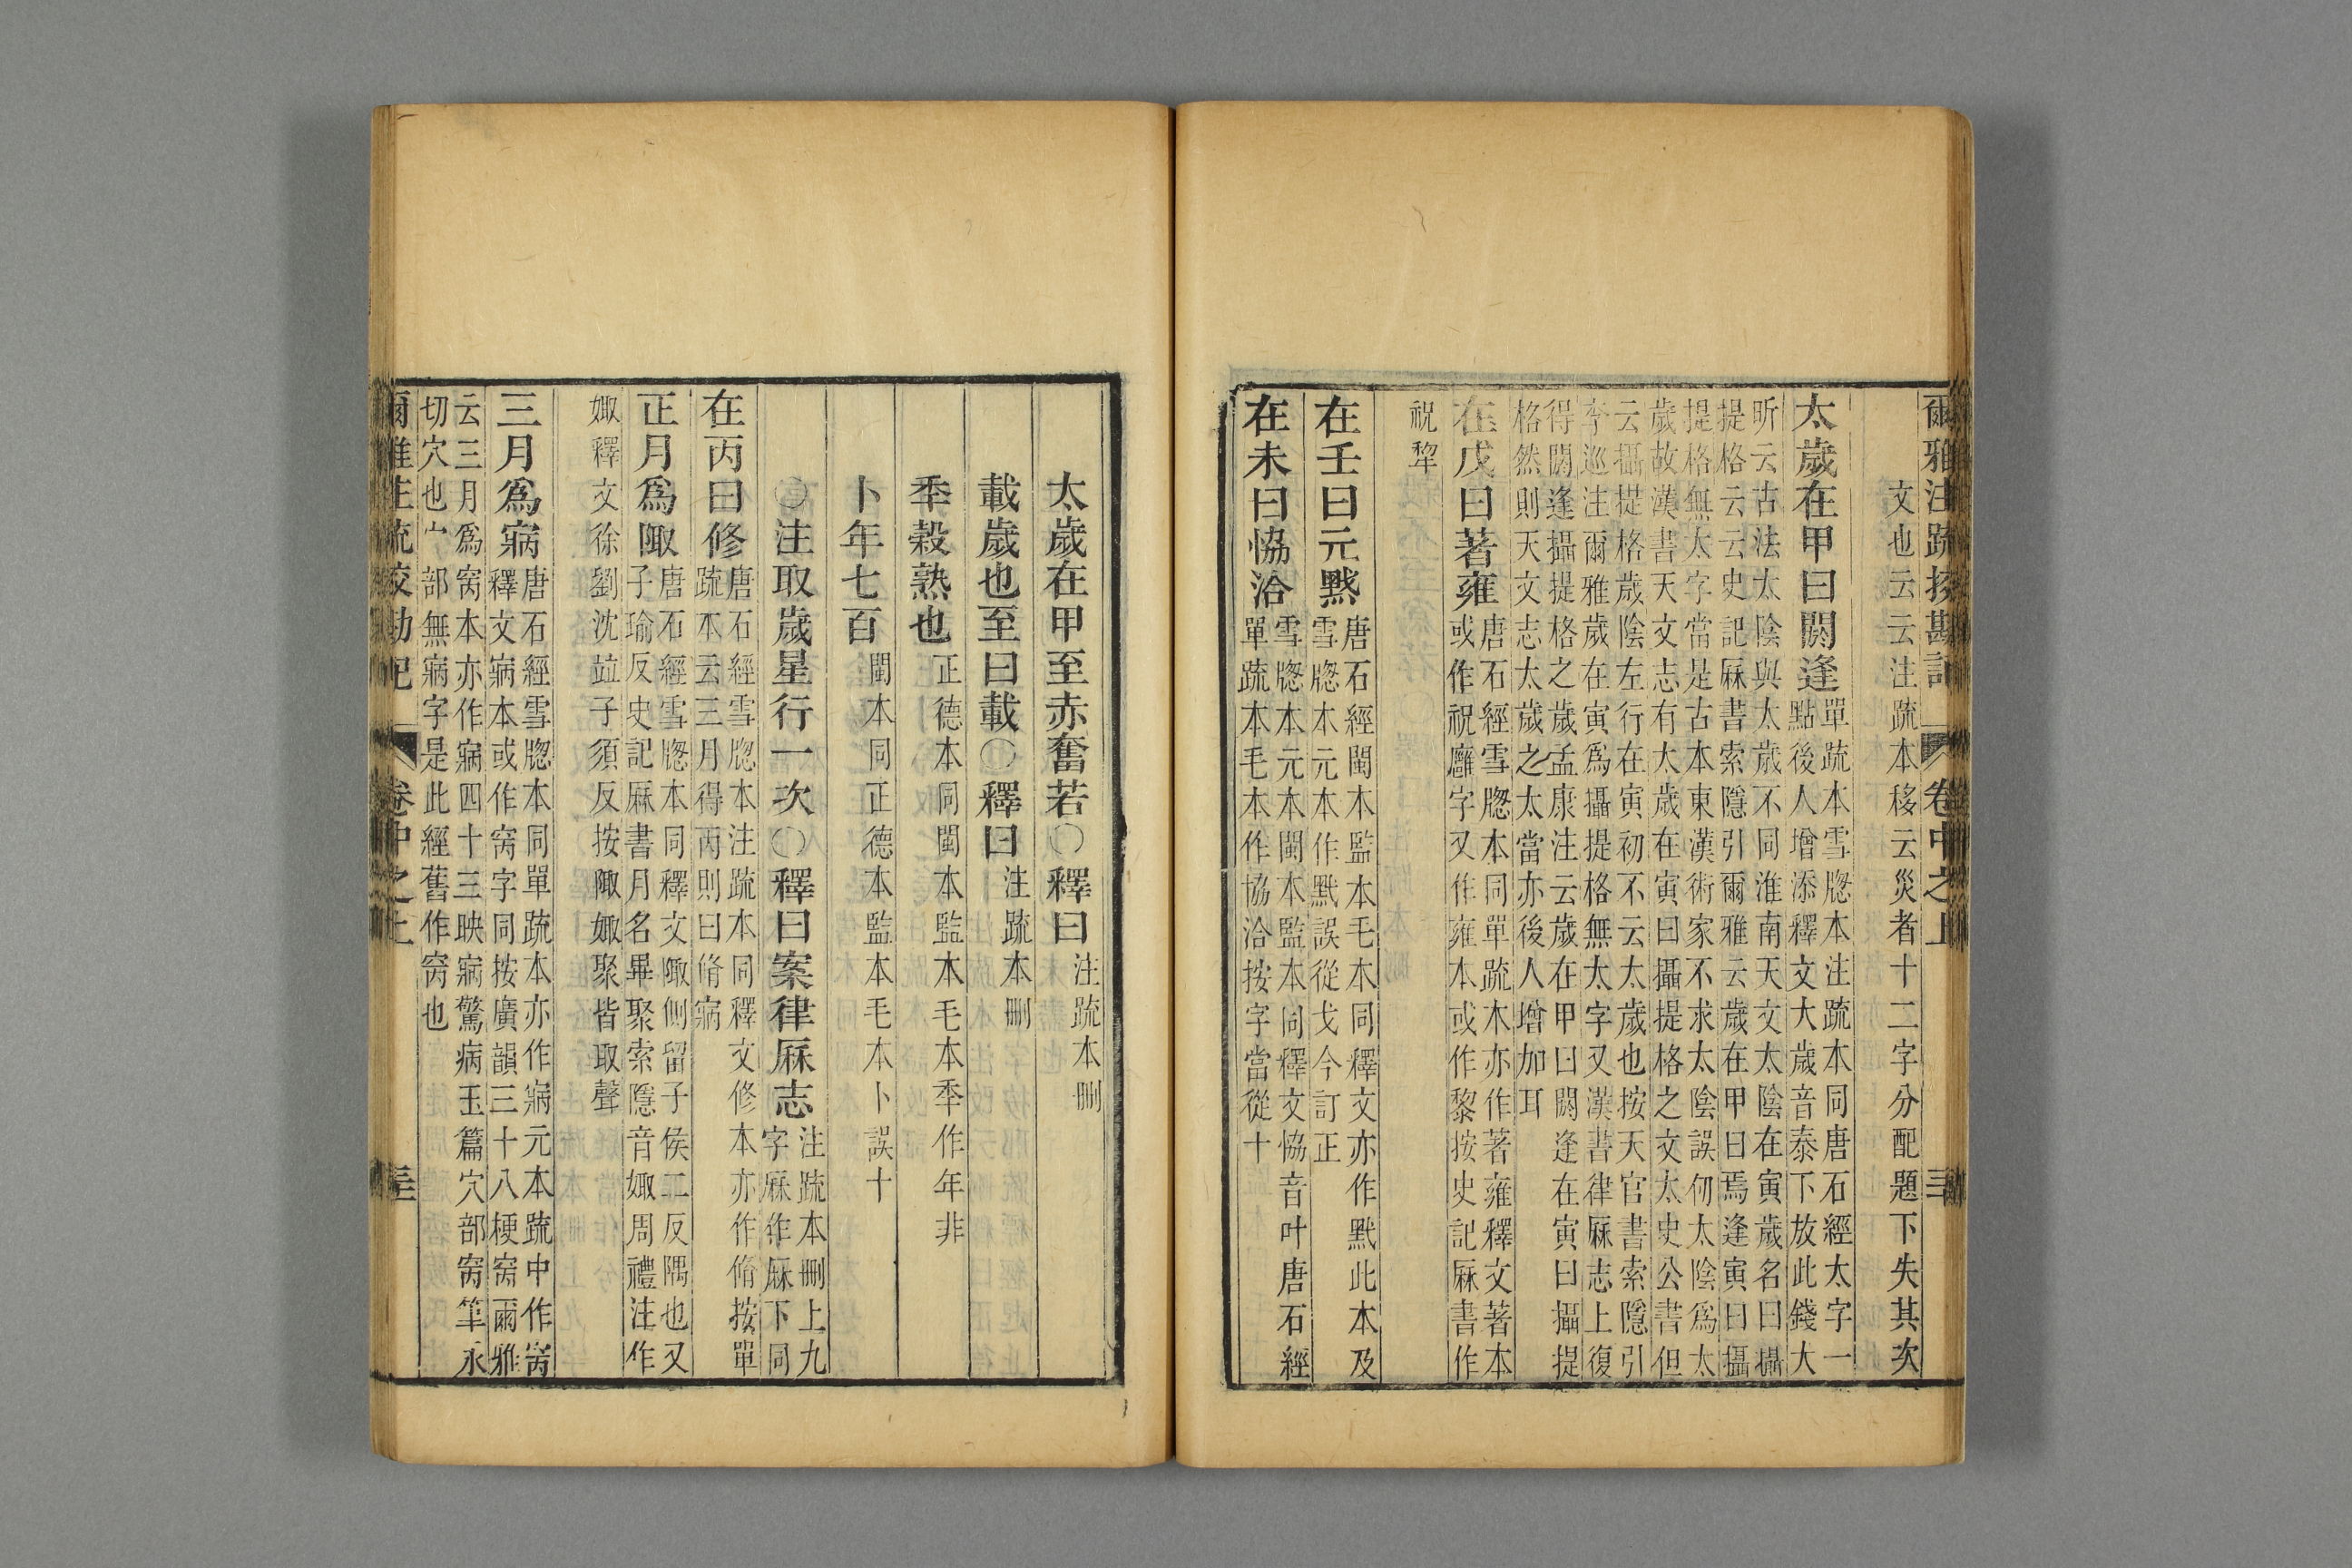 爾雅注疏挍勘記　卷中之上　三
文也云云注疏本移云災者十二字分配題下失其次
太歲在甲曰閼逢單疏本雪牕本注疏本同唐石經太字一
點後人增添釋文大歲音泰下放此錢大
昕云古法太陰與太歲不同淮南天文太陰在寅歲名曰攝
提格云云史記厤書索隱引爾雅云歲在甲曰焉逢寅曰攝
提格無太字當是古本東漢術家不求太陰誤仞太陰爲太
歲故漢書天文志有太歲在寅曰攝提格之文太史公書但
云攝提格歲陰左行在寅初不云太歲也按天官書索隱引
李巡注爾雅歲在寅爲攝提格無太字又漢書律厤志上復
得閼逢攝提格之歲孟康注云歲在甲曰閼逢在寅曰攝提
格然則天文志太歲之太當亦後人增加耳
在戊曰著雍唐石經雪牕本同單疏本亦作著雍釋文著本
或作祝廱字又作雍本或作黎按史記厤書作
祝犂
在壬曰元黓唐石經閩本監本毛本同釋文亦作黓此本及
雪牕本元本作默誤從戈今訂正
在未曰恊洽雪牕本元本閩本監本同釋文恊音叶唐石經
單疏本毛本作協洽按字當從十
太歲在甲至赤奮若〇釋曰注疏本刪
載歲也至曰載〇釋曰注疏本刪
秊穀熟也正德本同閩本監本毛本秊作年非
卜年七百閩本同正德本監本毛本卜誤十
〇注取歲星行一次〇釋曰案律厤志注疏本刪上九
字厤作厤下同
在丙曰修唐石經雪牕本注疏本同釋文修本亦作脩按單
疏本云三月得丙則曰脩寎
正月爲陬唐石經雪牕本同釋文陬側留子侯二反隅也又
子瑜反史記厤書月名畢聚索隱音娵周禮注作
娵釋文徐劉沈竝子須反按陬娵聚皆取聲
三月爲寎唐石經雪牕本同單疏本亦作寎元本疏中作窉
釋文寎本或作窉字同按廣韻三十八梗窉爾雅
云三月爲窉本亦作寎四十三映寎驚病玉篇穴部窉筆永
切穴也宀部無寎字是此經舊作窉也
爾雅注疏校勘記　卷中之上